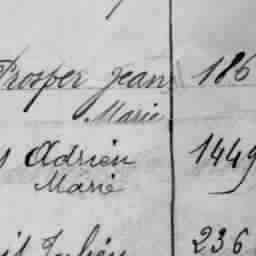 Prosper Jean 186
Marie
Adrien 1449
Marie
Julien 236